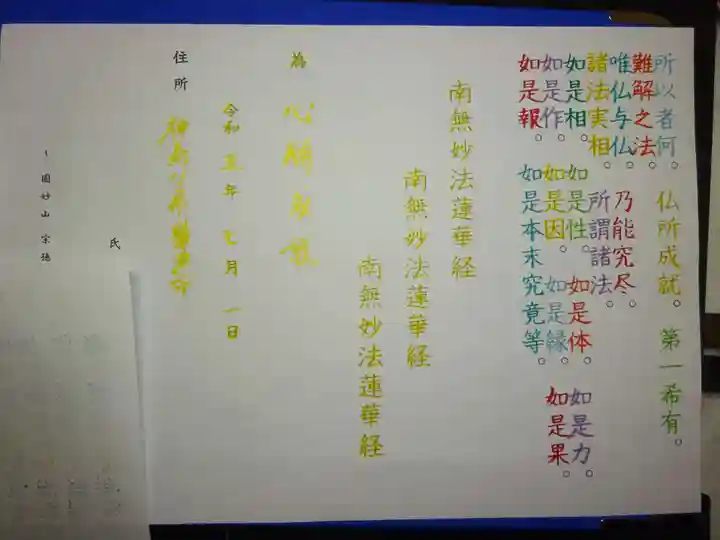 所以者何。仏所成就。第一希有。
難解之法。
唯仏与仏。乃能究尽。
諸法実相。所謂諸法。
如是相。如是性。如是体。如是力。
如是作。如是因。如是縁。如是果。
如是報。如是本末究竟等。
南無妙法蓮華経
南無妙法蓮華経
南無妙法蓮華経
為 心
令和五年七月一日
住所
氏
圓妙山 宗徳